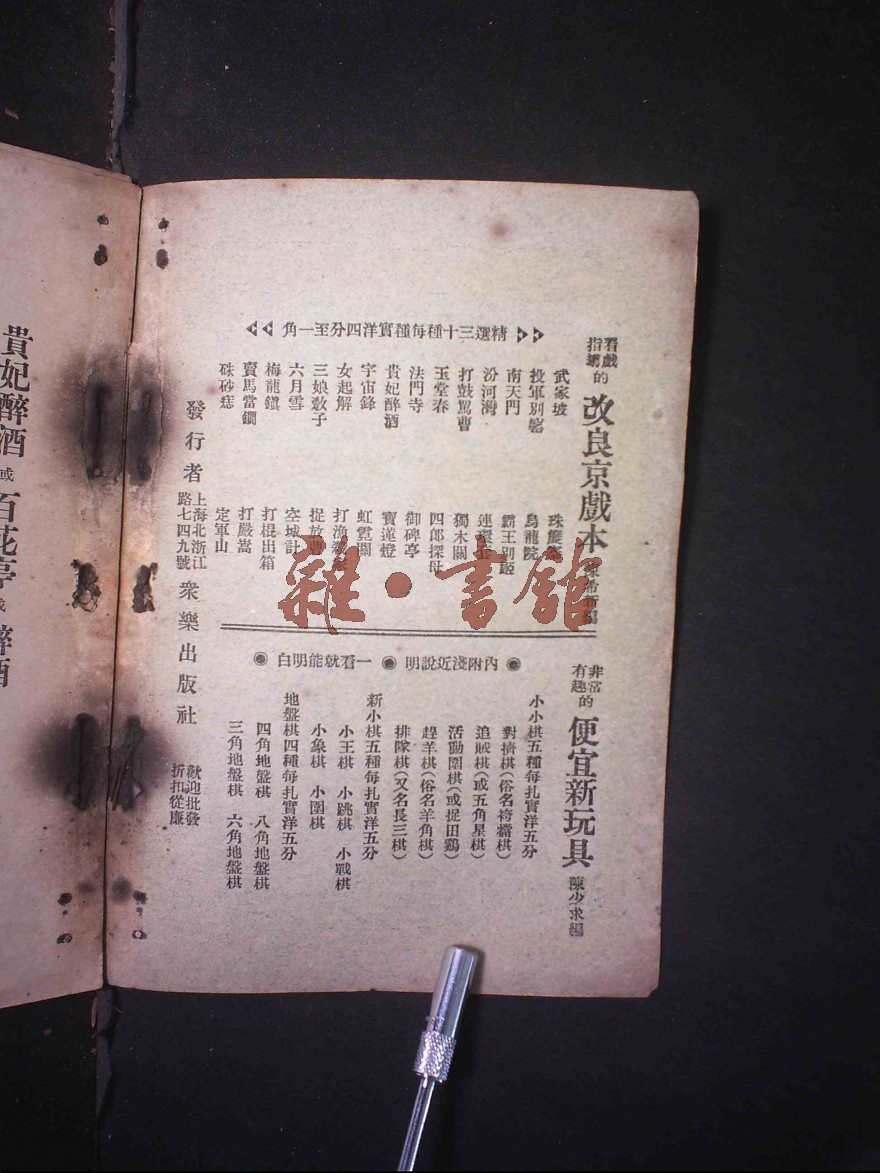 看戲指導的 改良京戲本
精選三十種每種實洋四分至一角
武家坡
投軍別窰
南天門
汾河灣
打鼓罵曹
玉堂春
法門寺
貴妃醉酒
宇宙鋒
女起解
三娘敎子
六月雪
梅龍鎭
賣馬當鐧
硃砂痣
珠簾寨
烏龍院
霸王別姬
連環套
獨木關
四郎探母
御碑亭
寶蓮燈
虹霓關
打漁殺家
捉放曹
空城計
打棍出箱
打嚴嵩
定軍山
非常有趣的 便宜新玩具 陳少求編
內附淺近說明 一看就能明白
小小棋五種每扎實洋五分
對擠棋(俗名袴襠棋)
追賊棋(或五角星棋)
活動圍棋(或捉田鷄)
趕羊棋(俗名羊角棋)
排隊棋(又名長三棋)
新小棋五種每扎實洋五分
小王棋 小跳棋 小戰棋
小象棋 小圍棋
地盤棋四種每扎實洋五分
四角地盤棋 八角地盤棋
三角地盤棋 六角地盤棋
發行者 上海北浙江路七四九號 衆樂出版社 歡迎批發折扣從廉
貴妃醉酒 或 百花亭 或 醉酒
雜·書館